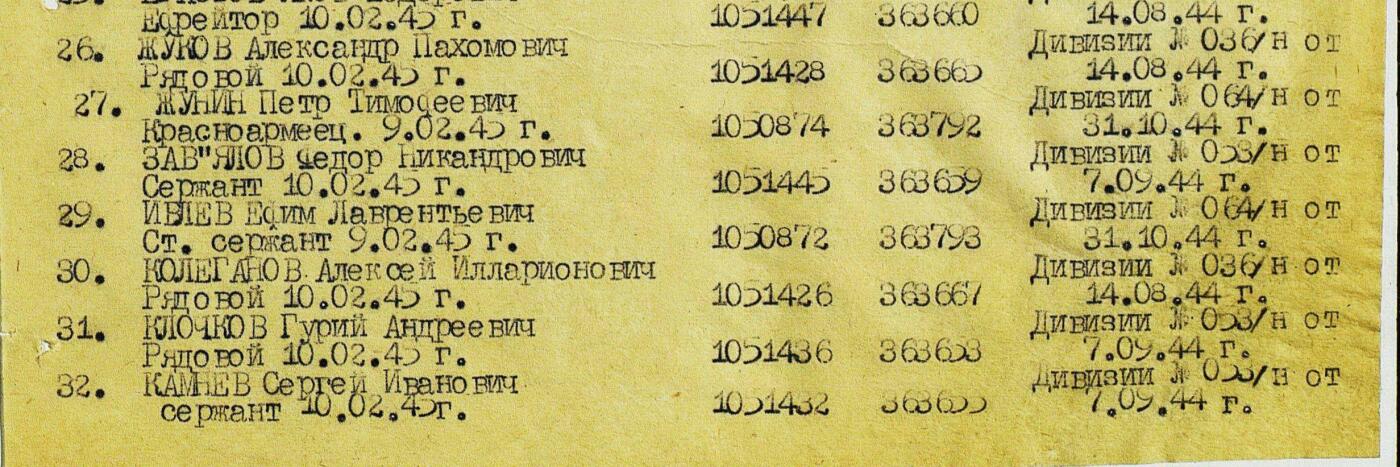 Ефрейтор 10.02.45 г. 1051447 363660 14.08.44 г.
26. ЖУКОВ Александр Пахомович Дивизии № 036/н от
Рядовой 10.02.45 г. 1051428 363665 14.08.44 г.
27. ЖУНИН Петр Тимофеевич Дивизии № 064/н от
Красноармеец. 9.02.45 г. 1050874 363792 31.10.44 г.
28. ЗАВ"ЯЛОВ Федор Никандрович Дивизии № 053/н от
Сержант 10.02.45 г. 1051445 363659 7.09.44 г.
29. ИВЛЕВ Ефим Лаврентьевич Дивизии № 064/н от
Ст. сержант 9.02.45 г. 1050872 363793 31.10.44 г.
30. КОЛЕГАНОВ Алексей Илларионович Дивизии № 036/н от
Рядовой 10.02.45 г. 1051426 363667 14.08.44 г.
31. КЛОЧКОВ Гурий Андреевич Дивизии № 053/н от
Рядовой 10.02.45 г. 1051436 363653 7.09.44 г.
32. КАМНЕВ Сергей Иванович Дивизии № 053/н от
сержант 10.02.45г. 1051432 363655 7.09.44 г.